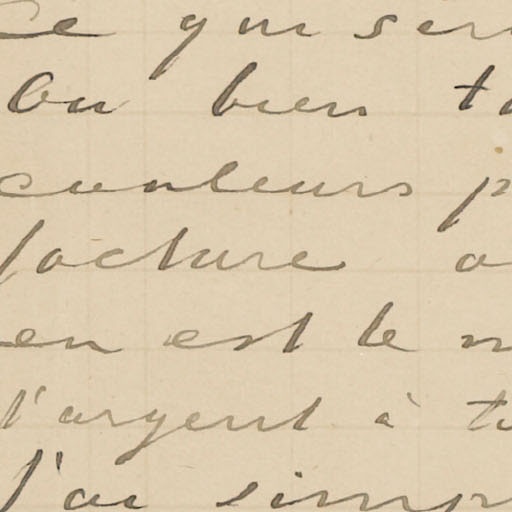 ce qui ser
Ou bien t
couleurs p
facture a
en est le m
l'argent à t
J'ai simp